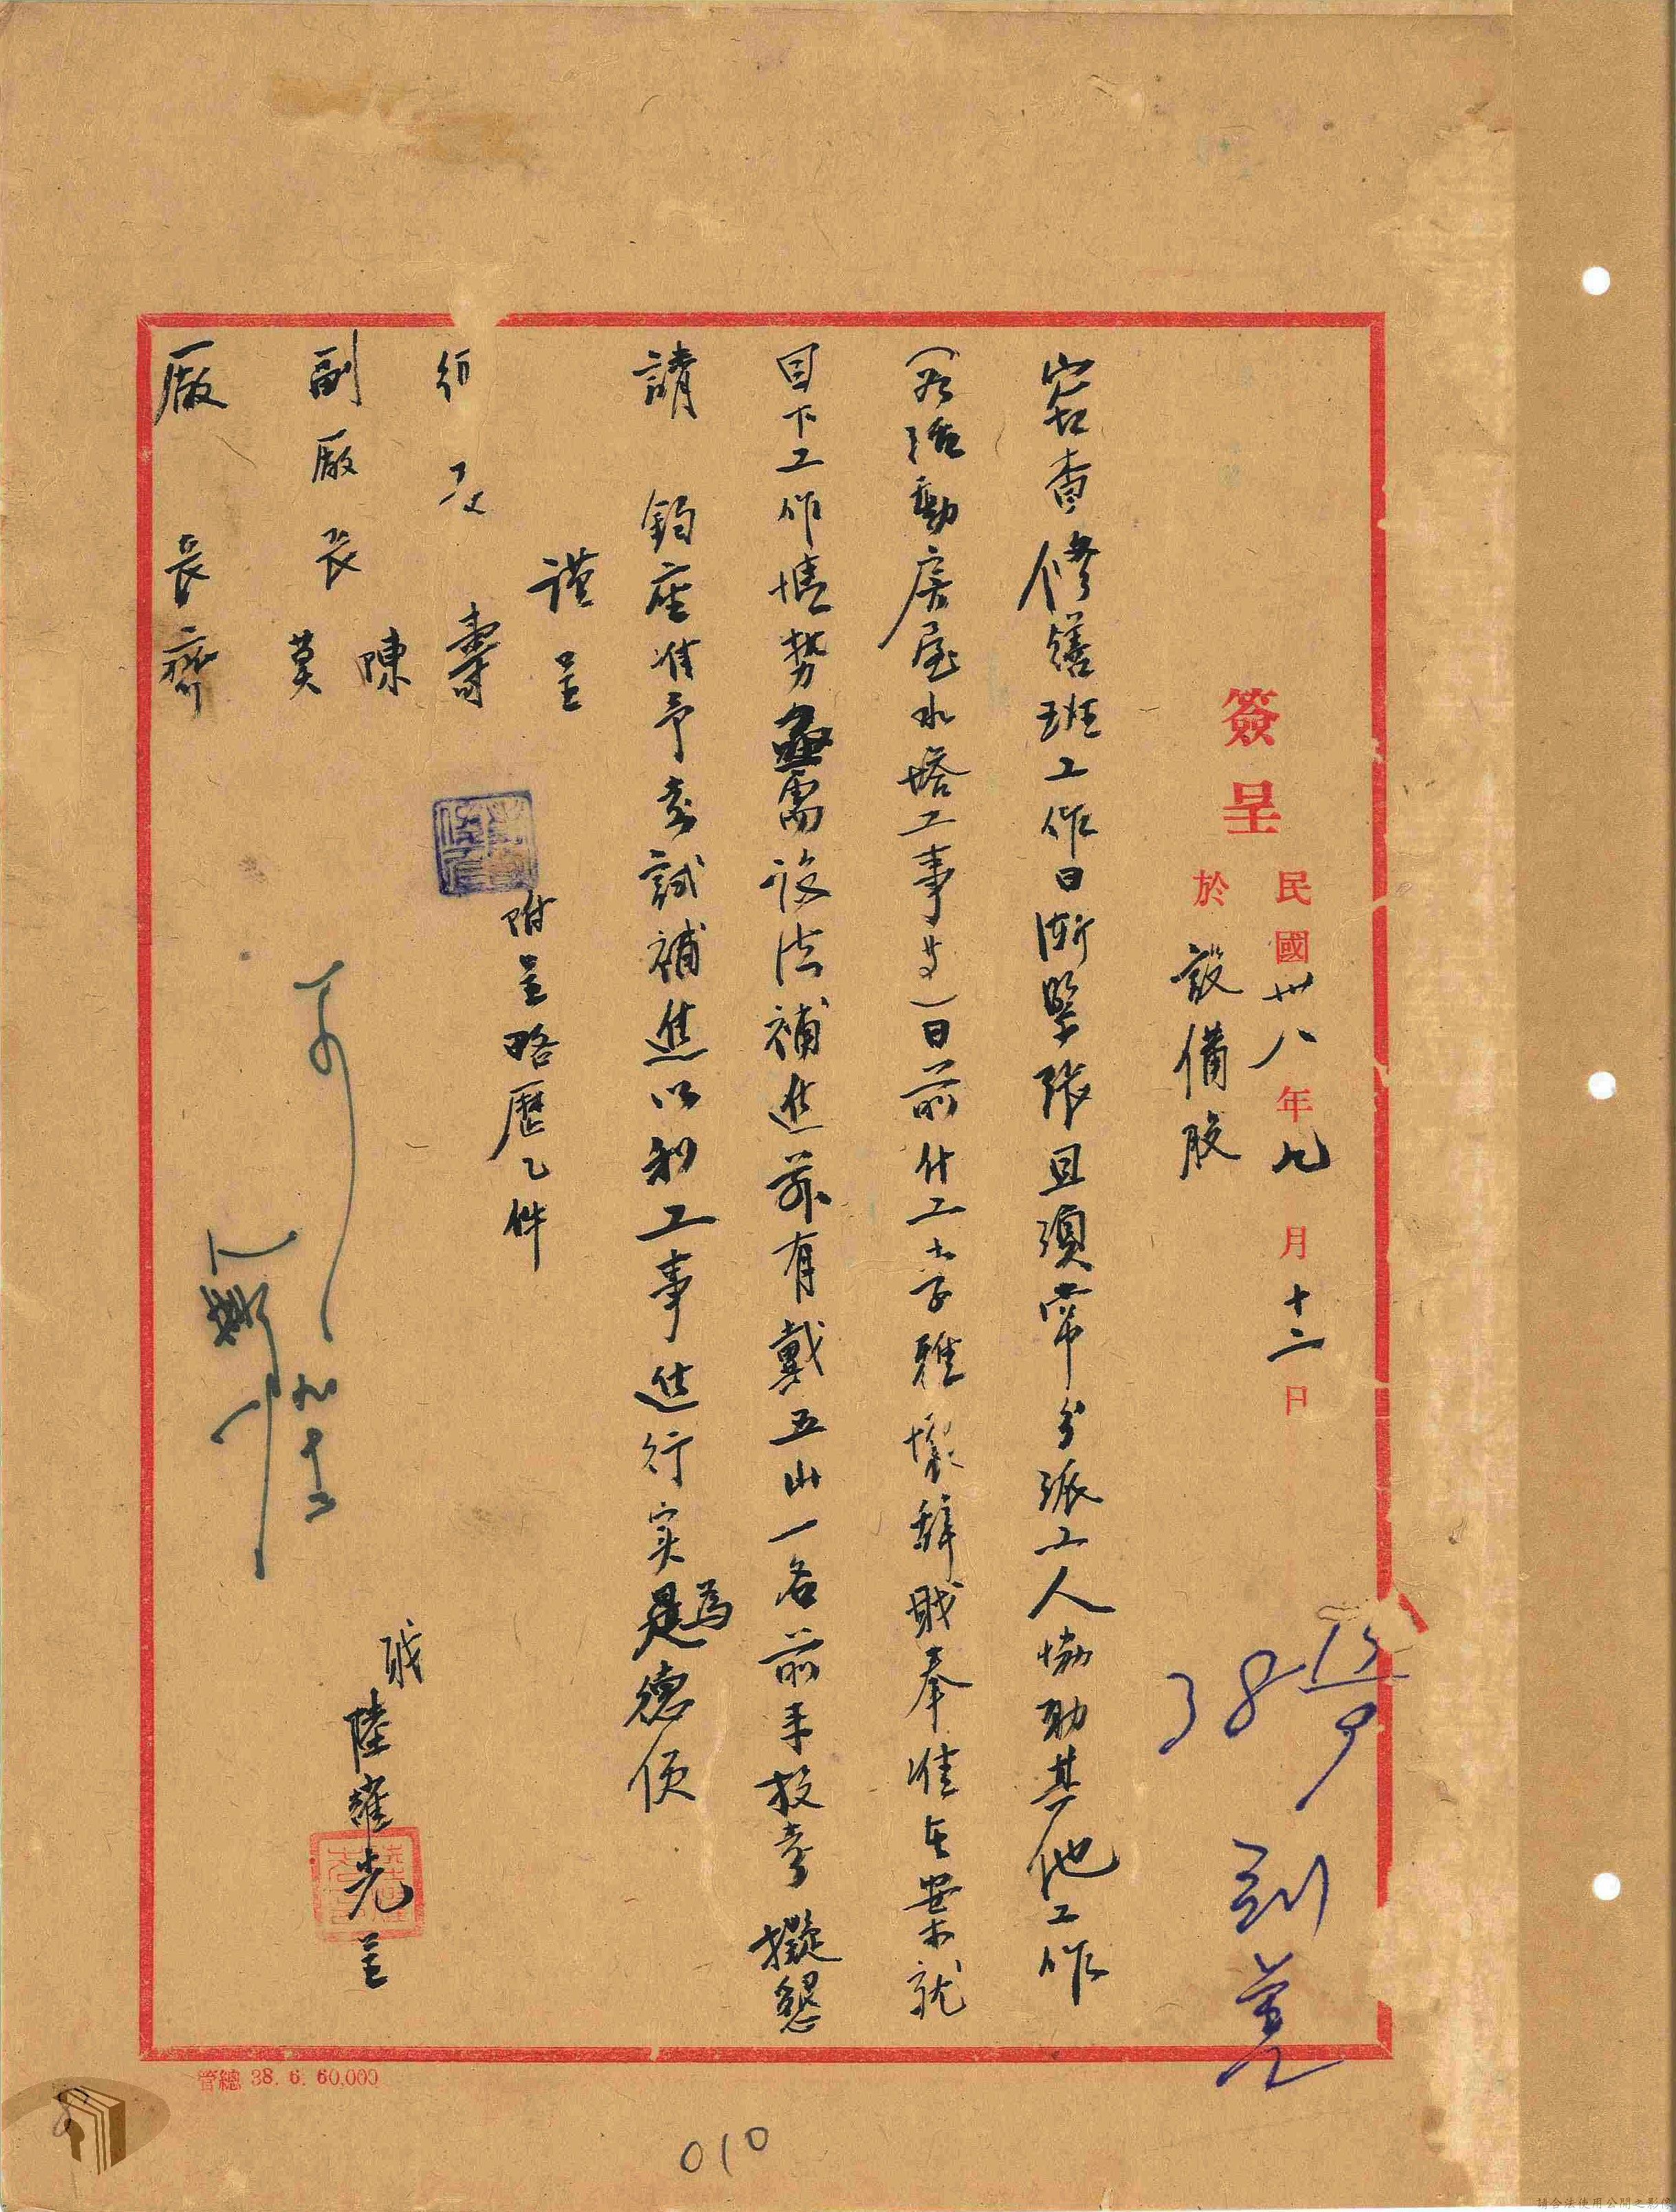 簽呈
民國卅八年九月十二日
於設備股
窃查修繕班工作日漸緊張且須常分派工人協助其他工作
(如活動房屋水塔工事等)日前什工李雅懷辭職奉准在案就
目下工作情勢亟需設法補進茲有戴五山一名前來投考擬懇
請 鈞座准予考試補進以利工事進行实為德便
謹呈
附呈略歷乙件
壽
副廠長 陳 莫
廠長 齊
職 陸雍光 呈
九 十二
38 13/9
到
管總 38. 6. 60,000
010